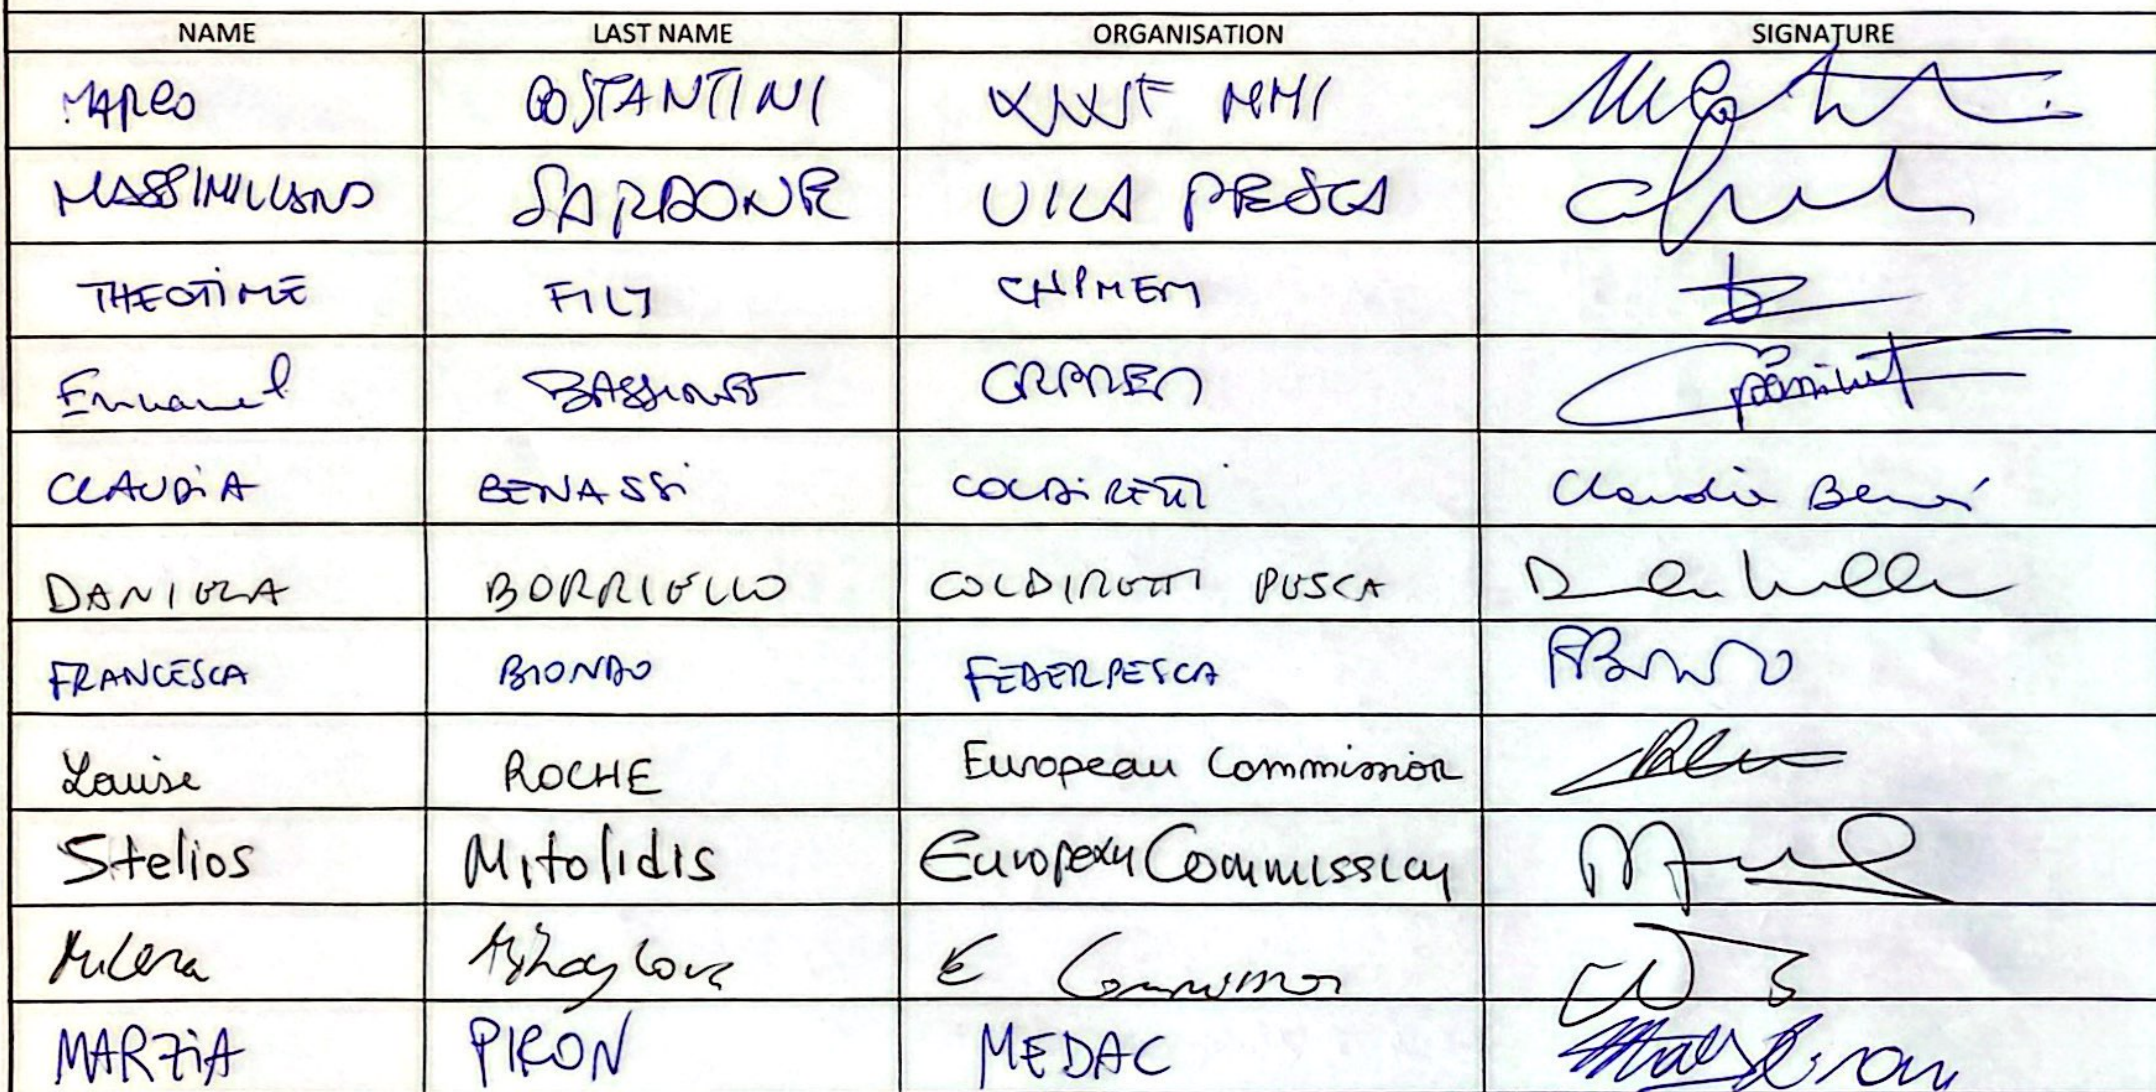 NAME LAST NAME ORGANISATION SIGNATURE
MARCO COSTANTINI WWF MMI
MASSIMILIANO SARDONE UILA PESCA
THEOTIME FILY CNPMEM
Emmanuel CRPMEM
CLAUDIA BENASSI COLDIRETTI Claudia Benassi
DANIELA BORRIELLO COLDIRETTI PESCA
FRANCESCA BIONDO FEDERPESCA
Louise ROCHE European Commission
Stelios Mitolidis European Commission
Milena Mihaylova E Commission
MARZIA PIRON MEDAC